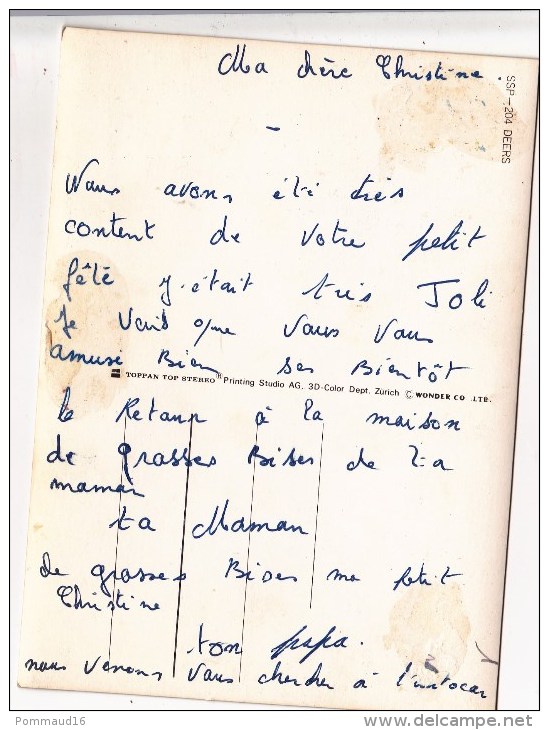 Ma chère Christine.
SSP-204 DEERS
Nous avons été très
content de votre petit
fêté y-était très Joli
Je vois que vous vous
amusé Bien ses Bientôt
TOPPAN TOP STEREO® Printing Studio AG, 3D-Color Dept. Zürich © WONDER CO .LTD.
le Retour à la maison
de grosses Bises de ta
maman
ta Maman
de grosses Bises ma petit
Christine
ton papa.
nous venons vous chercher à l'autocar
Pommaud16
delcampe.net